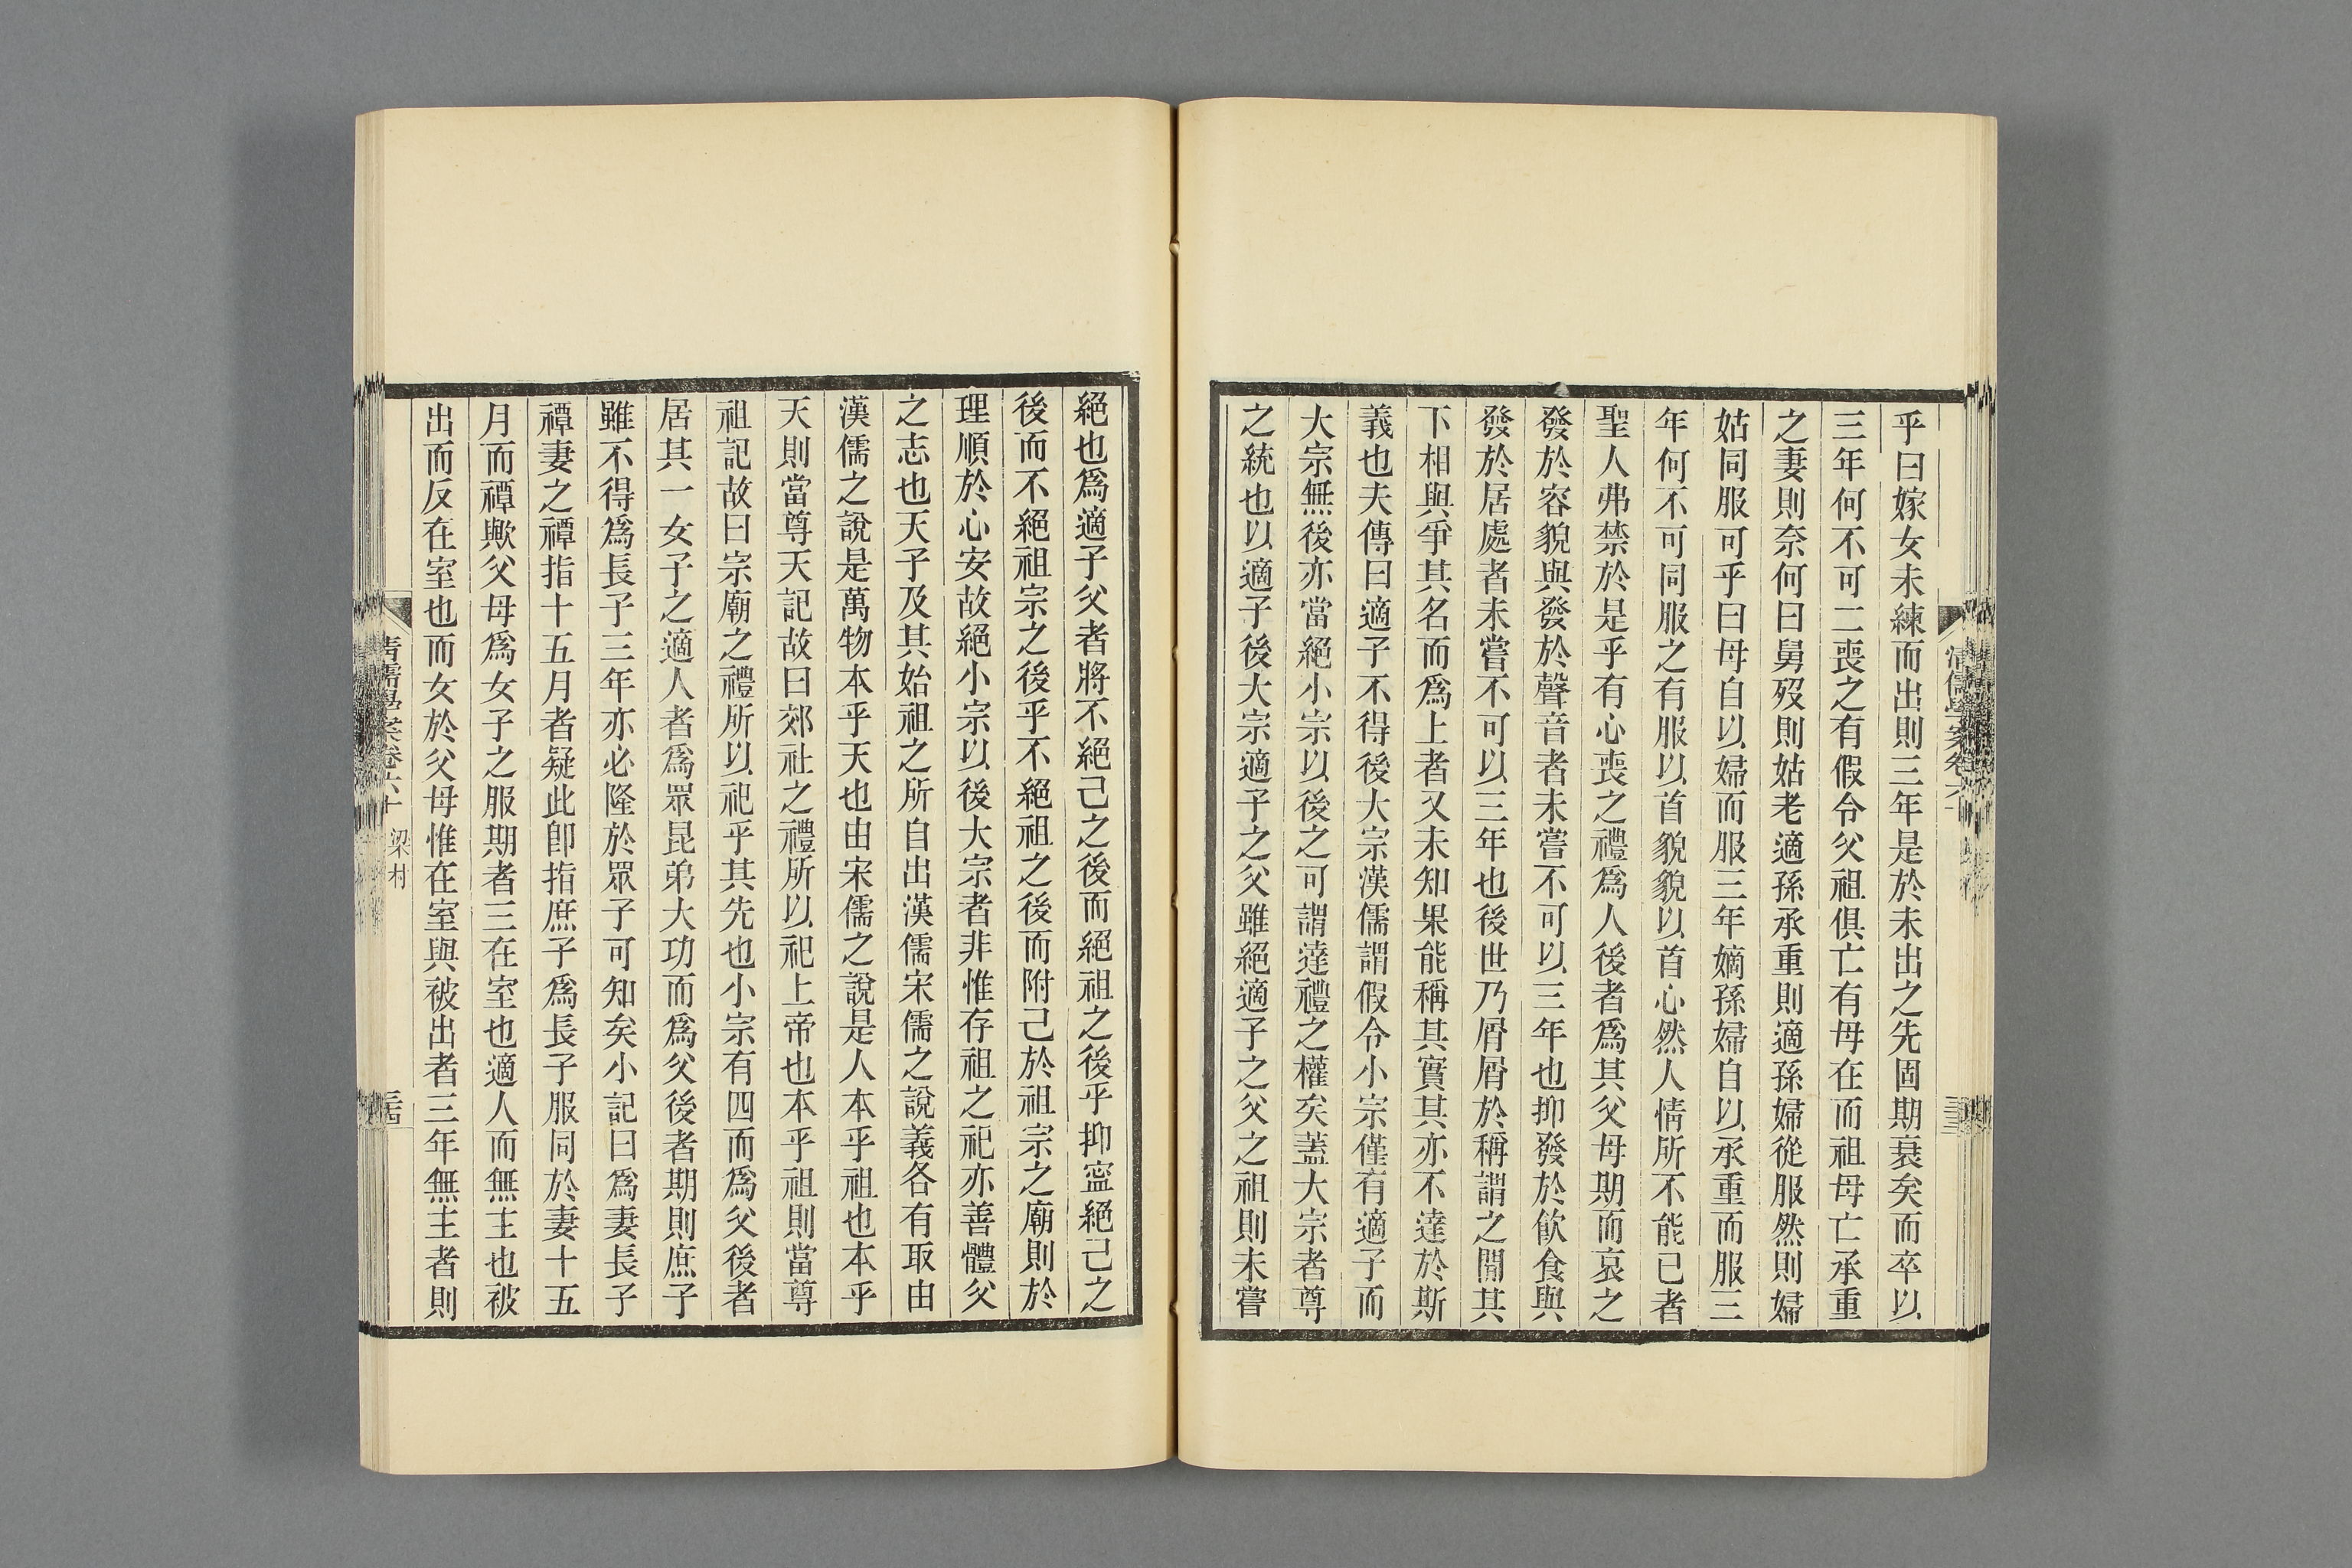 乎曰嫁女未練而出則三年是於未出之先固期衰矣而卒以
三年何不可二喪之有假令父祖俱亡有母在而祖母亡承重
之妻則奈何曰舅歿則姑老適孫承重則適孫婦從服然則婦
姑同服可乎曰母自以婦而服三年嫡孫婦自以承重而服三
年何不可同服之有服以首貌貌以首心然人情所不能已者
聖人弗禁於是乎有心喪之禮爲人後者爲其父母期而哀之
發於容貌與發於聲音者未嘗不可以三年也抑發於飲食與
發於居處者未嘗不可以三年也後世乃屑屑於稱謂之閒其
下相與爭其名而爲上者又未知果能稱其實其亦不達於斯
義也夫傳曰適子不得後大宗漢儒謂假令小宗僅有適子而
大宗無後亦當絕小宗以後之可謂達禮之權矣蓋大宗者尊
之統也以適子後大宗適子之父雖絕適子之父之祖則未嘗
絕也爲適子父者將不絕己之後而絕祖之後乎抑寍絕己之
後而不絕祖宗之後乎不絕祖之後而附己於祖宗之廟則於
理順於心安故絕小宗以後大宗者非惟存祖之祀亦善體父
之志也天子及其始祖之所自出漢儒宋儒之說義各有取由
漢儒之說是萬物本乎天也由宋儒之說是人本乎祖也本乎
天則當尊天記故曰郊社之禮所以祀上帝也本乎祖則當尊
祖記故曰宗廟之禮所以祀乎其先也小宗有四而爲父後者
居其一女子之適人者爲眾昆弟大功而爲父後者期則庶子
雖不得爲長子三年亦必隆於眾子可知矣小記曰爲妻長子
禫妻之禫指十五月者疑此卽指庶子爲長子服同於妻十五
月而禫歟父母爲女子之服期者三在室也適人而無主也被
出而反在室也而女於父母惟在室與被出者三年無主者則
清儒學案卷六十 梁村